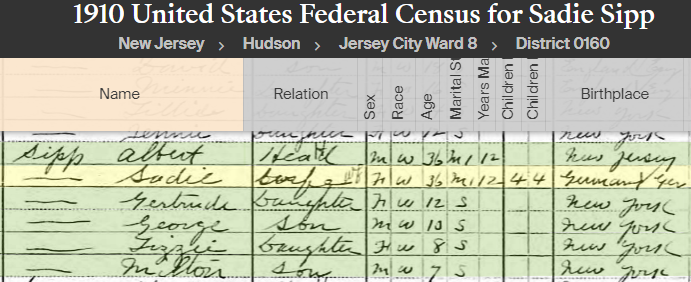 1910 United States Federal Census for Sadie Sipp
New Jersey > Hudson > Jersey City Ward 8 > District 0160
Name Relation Sex Race Age Marital S Years Ma Children Children Birthplace
— Jennie Daughter F W 12 S New York
Sipp Albert Head M W 36 M1 12 New Jersey
— Sadie Wf F W 36 M1 12 4 4 Germany Ger
— Gertrude Daughter F W 12 S New York
— George Son M W 10 S New York
— Lizzie Daughter F W 8 S New York
— Milton Son M W 7 S New York